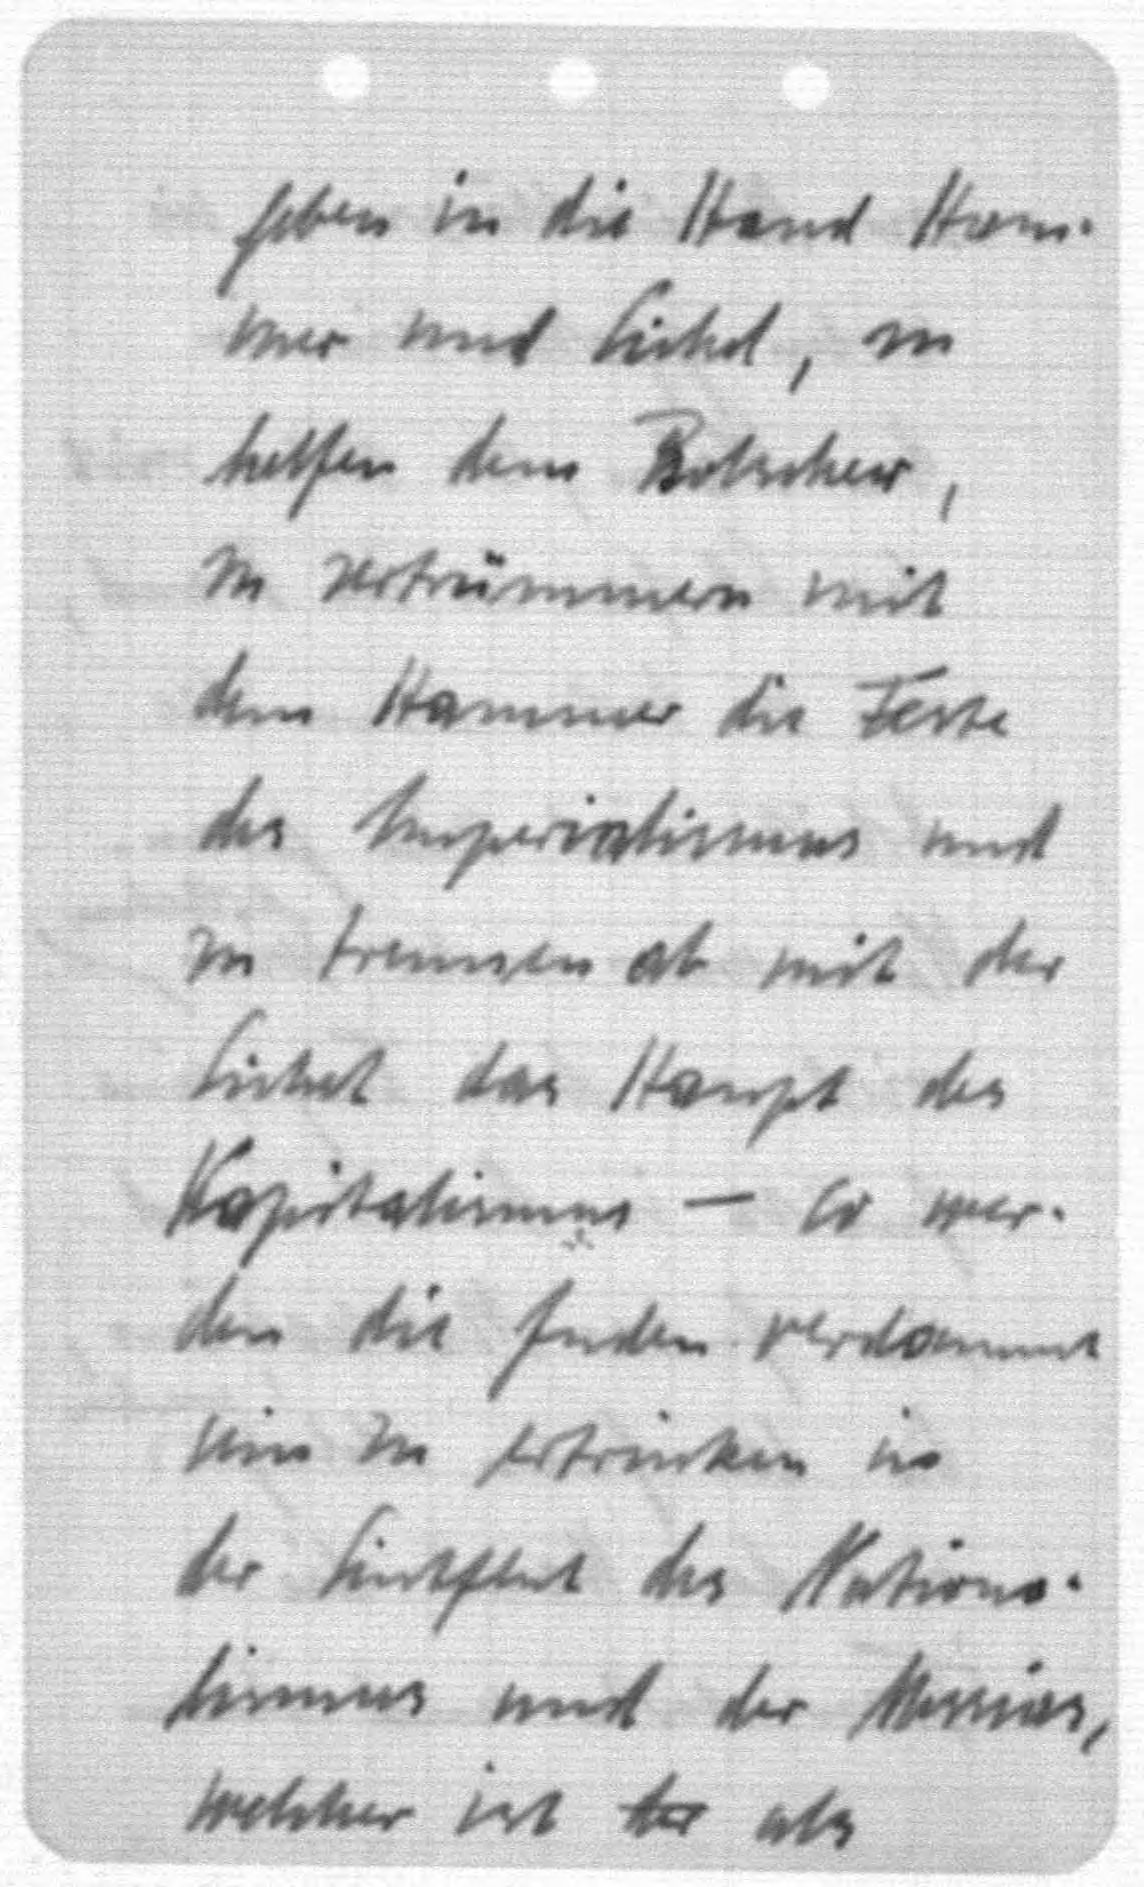 geben in die Hand Ham-
mer und Sichel, zu
helfen dem Bolschew,
zu zertrümmern mit
dem Hammer die Feste
des Imperialismus und
zu trennen ab mit der
Sichel das Haupt des
Kapitalismus – so wer-
den die Juden verdammt
sein zu ertrinken in
der Sintflut des Nationa-
lismus und der Messias,
welcher ist als